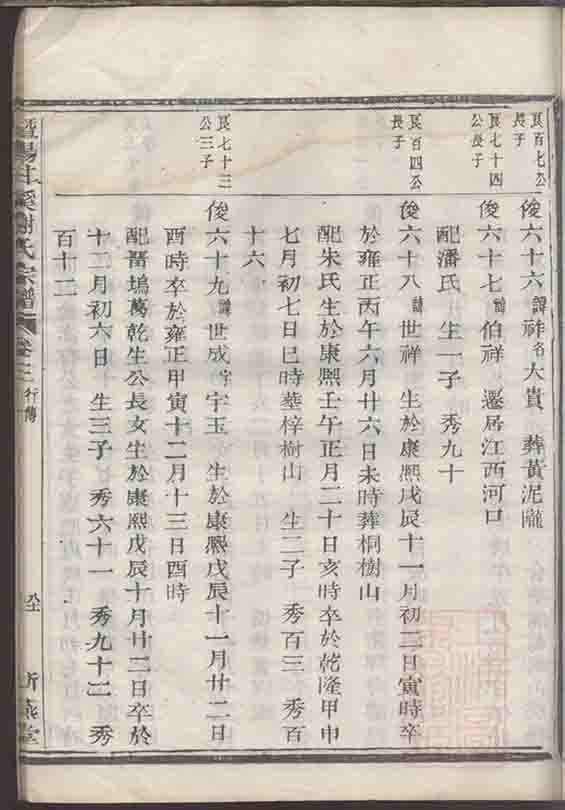 良百七公
長子
俊六十六諱祚名大貴 葬黃泥隴
良七十四
公長子
俊六十七諱伯祥 遷居江西河口
配潘氏 生一子 秀九十
良百四公
長子
俊六十八諱世祥 生於康熙戊辰十一月初三日寅時卒
於雍正丙午六月廿六日未時葬桐樹山
配朱氏生於康熙壬午正月二十日亥時卒於乾隆甲申
七月初七日巳時葬梓樹山 生二子 秀百三 秀百
十六
良七十三
公三子
俊六十九諱世成字宇玉 生於康熙戊辰十一月廿二日
酉時卒於雍正甲寅十二月十三日酉時
配晋塢萬乾生公長女生於康熙戊辰十月廿二日卒於
十二月初六日 生三子 秀六十一 秀九十三 秀
百十二
暨陽 溪謝氏宗譜 卷三 行傳